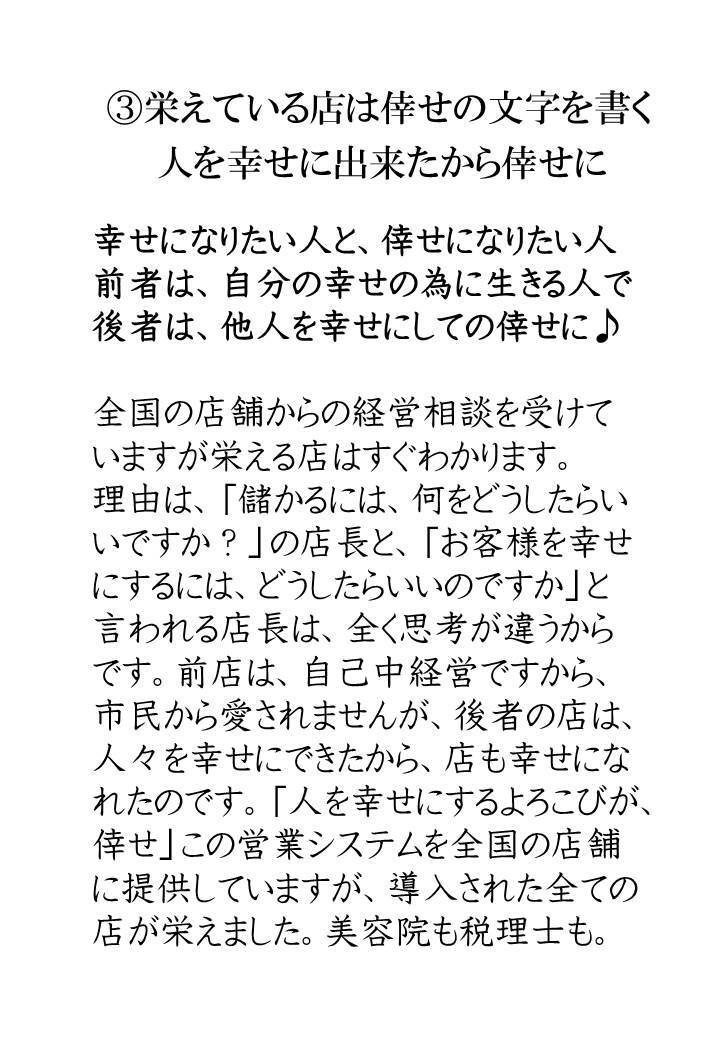 ③栄えている店は倖せの文字を書く
人を幸せに出来たから倖せに
幸せになりたい人と、倖せになりたい人
前者は、自分の幸せの為に生きる人で
後者は、他人を幸せにしての倖せに♪
全国の店舗からの経営相談を受けて
いますが栄える店はすぐわかります。
理由は、「儲かるには、何をどうしたらい
いですか？」の店長と、「お客様を幸せ
にするには、どうしたらいいのですか」と
言われる店長は、全く思考が違うから
です。前店は、自己中経営ですから、
市民から愛されませんが、後者の店は、
人々を幸せにできたから、店も幸せにな
れたのです。「人を幸せにするよろこびが、
倖せ」この営業システムを全国の店舗
に提供していますが、導入された全ての
店が栄えました。美容院も税理士も。